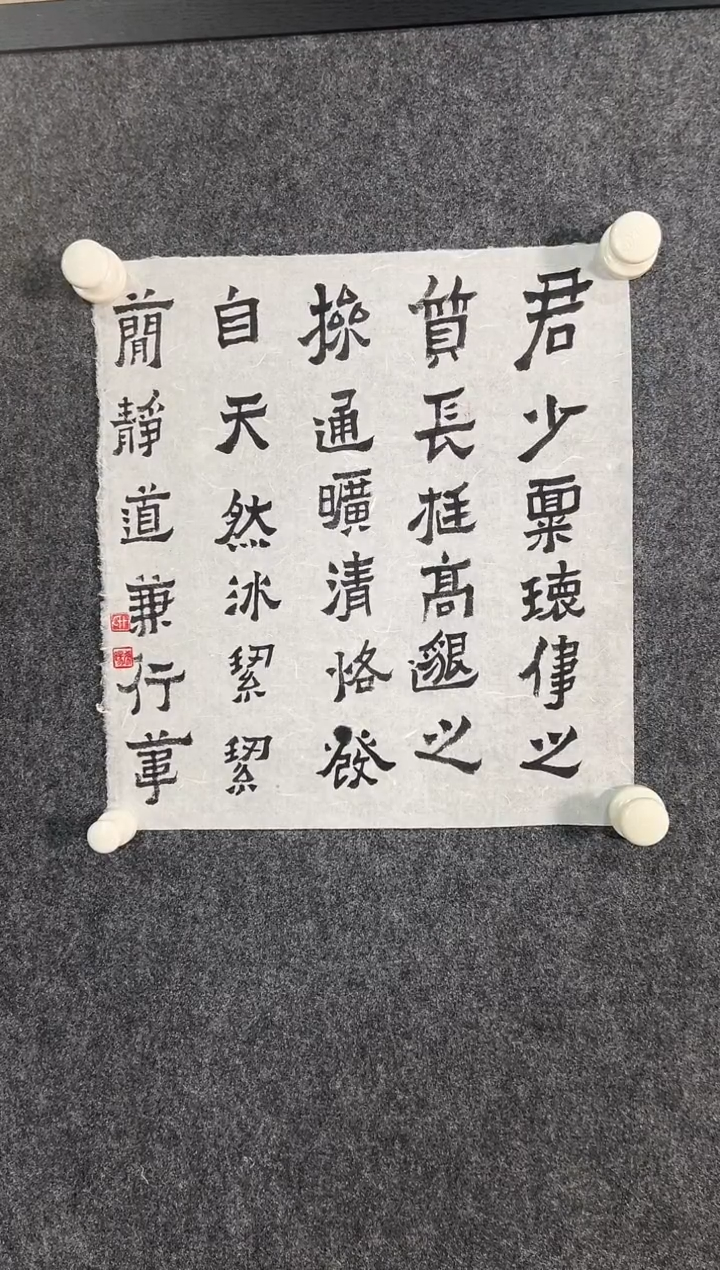 君少稟瓌偉之
質長挺高邈之
操通曠清恪發
自天然冰絜絜
簡靜道兼行葦